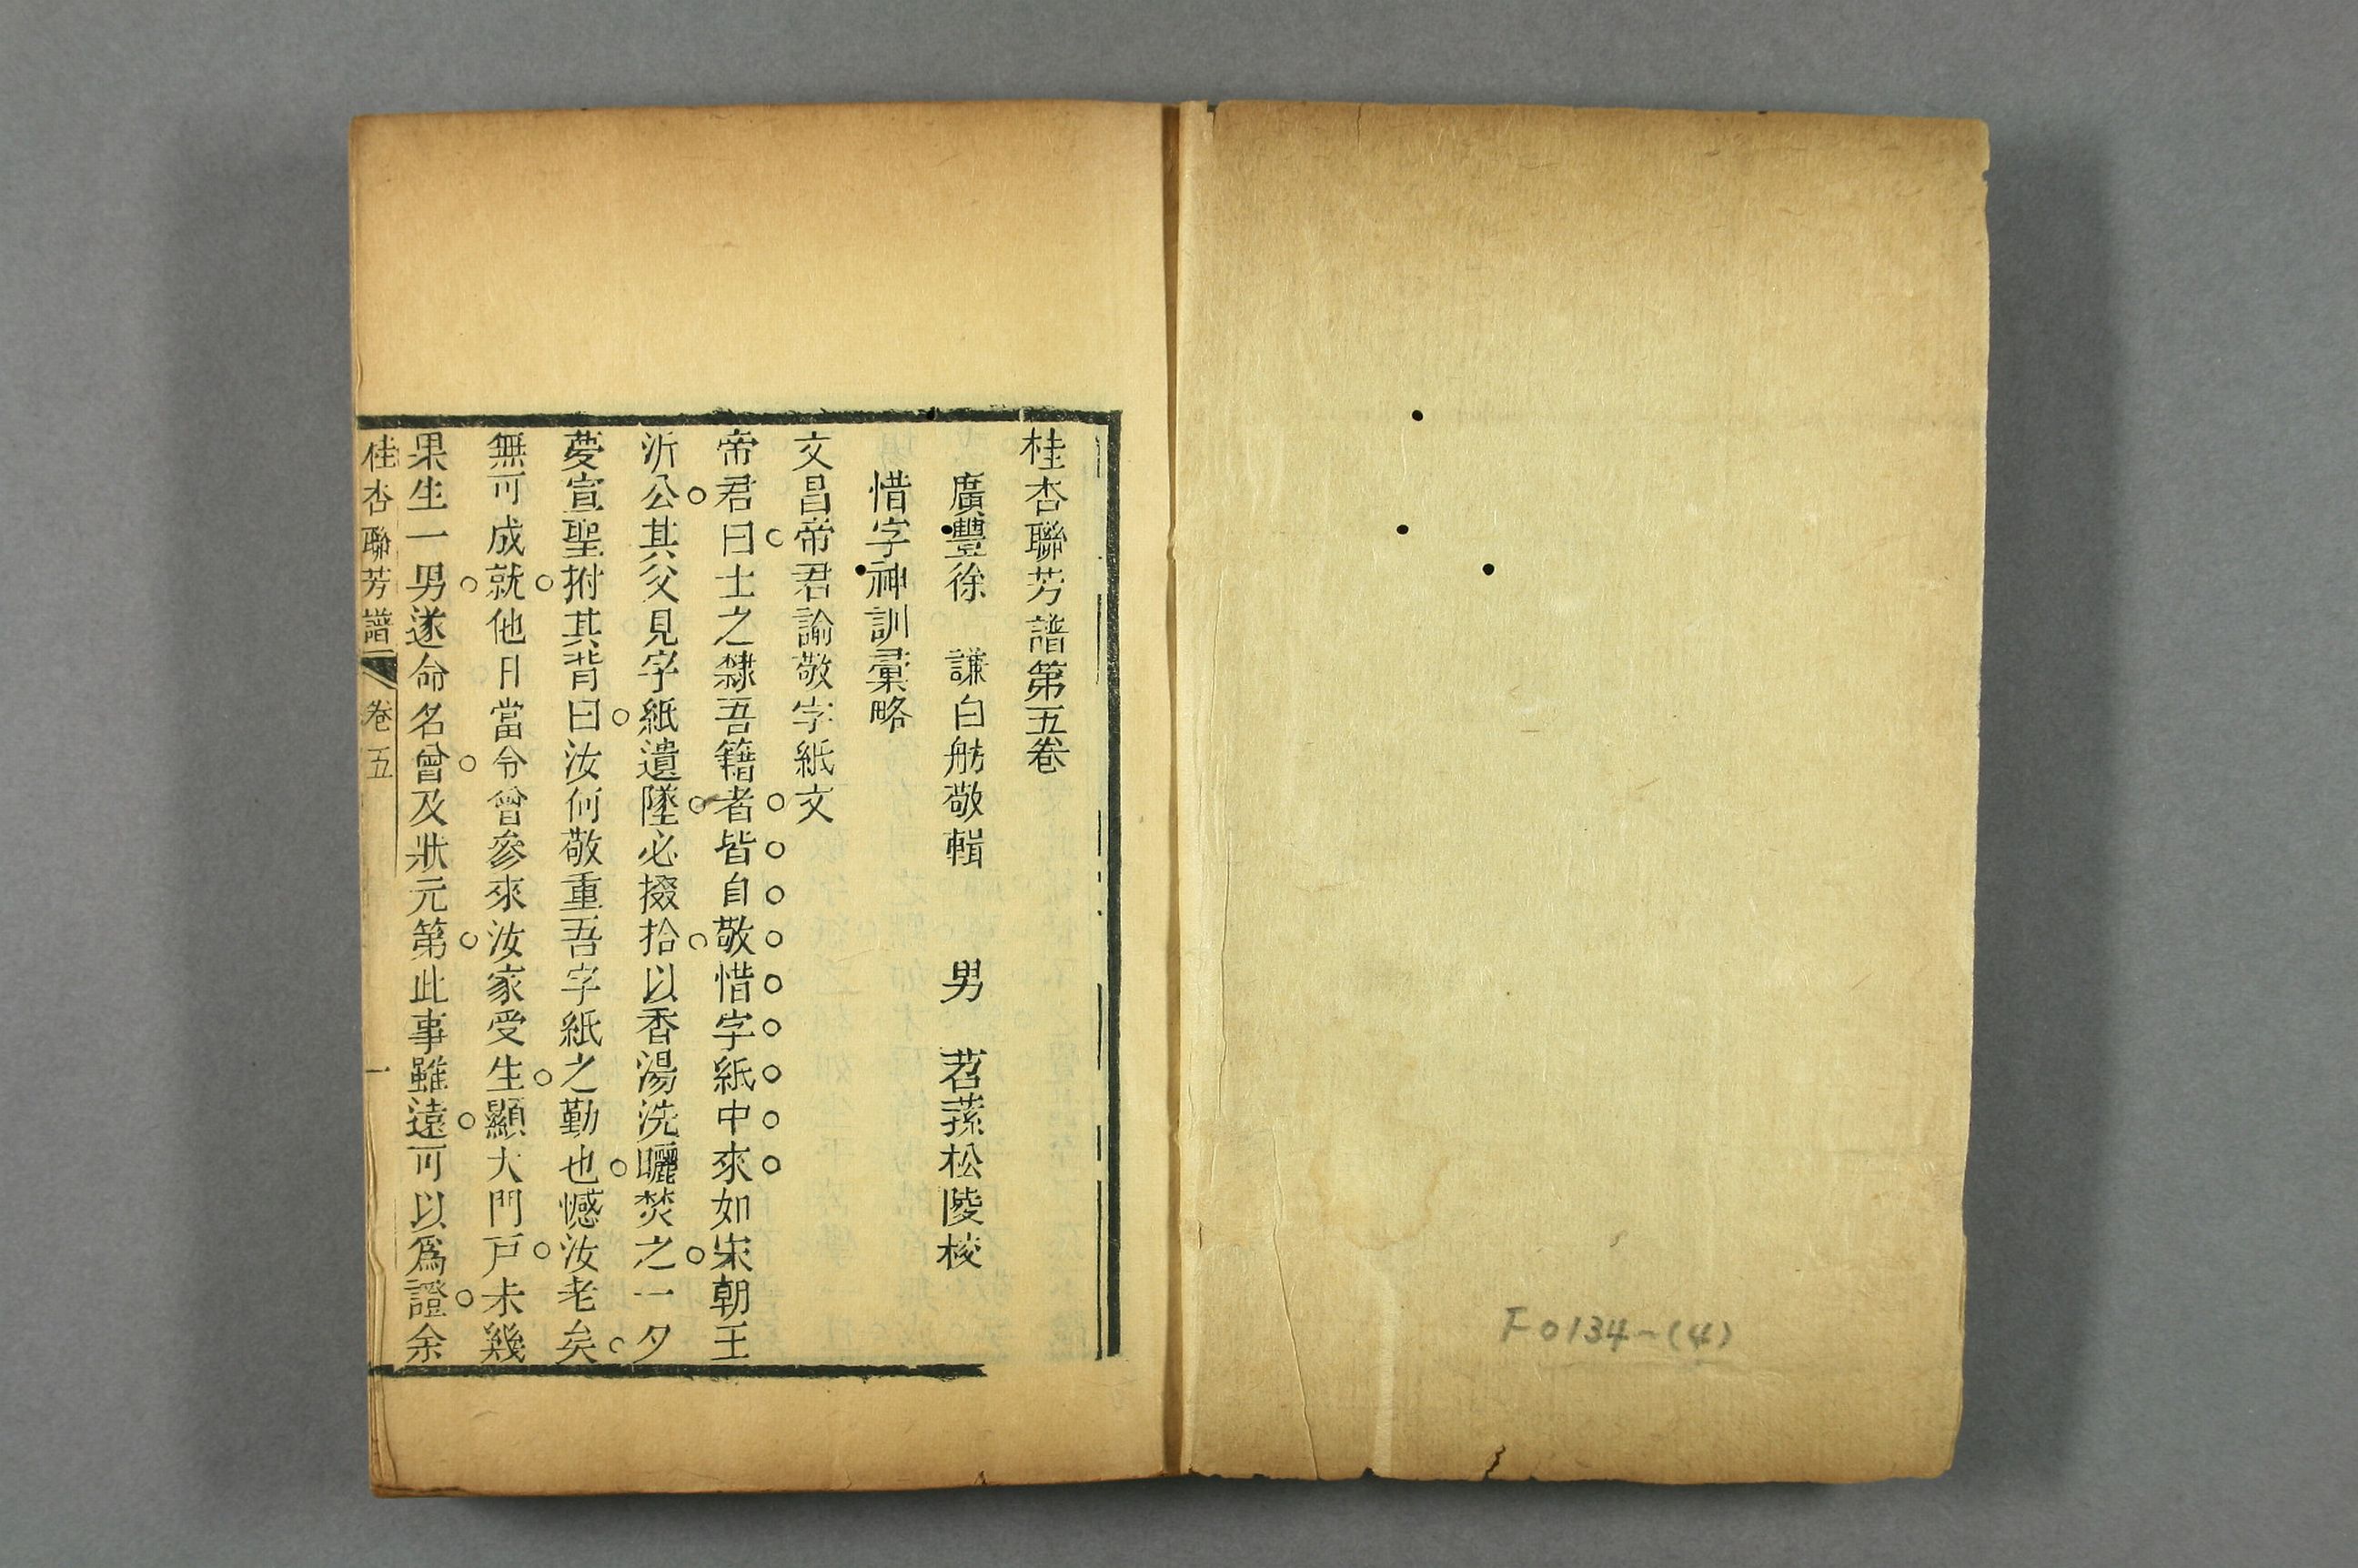 桂杏聯芳譜第五卷
廣豐徐　謙白舫敬輯　男　苕蓀松陵校
惜字神訓彙略
文昌帝君諭敬字紙文
帝君曰士之隸吾籍者皆自敬惜字紙中來如宋朝王
沂公其父見字紙遺墜必掇拾以香湯洗曬焚之一夕
夢宣聖拊其背曰汝何敬重吾字紙之勤也憾汝老矣
無可成就他日當令曾參來汝家受生顯大門戸未幾
果生一男遂命名曾及狀元第此事雖遠可以爲證余
桂杏聯芳譜　卷五　一
F0134-(4)